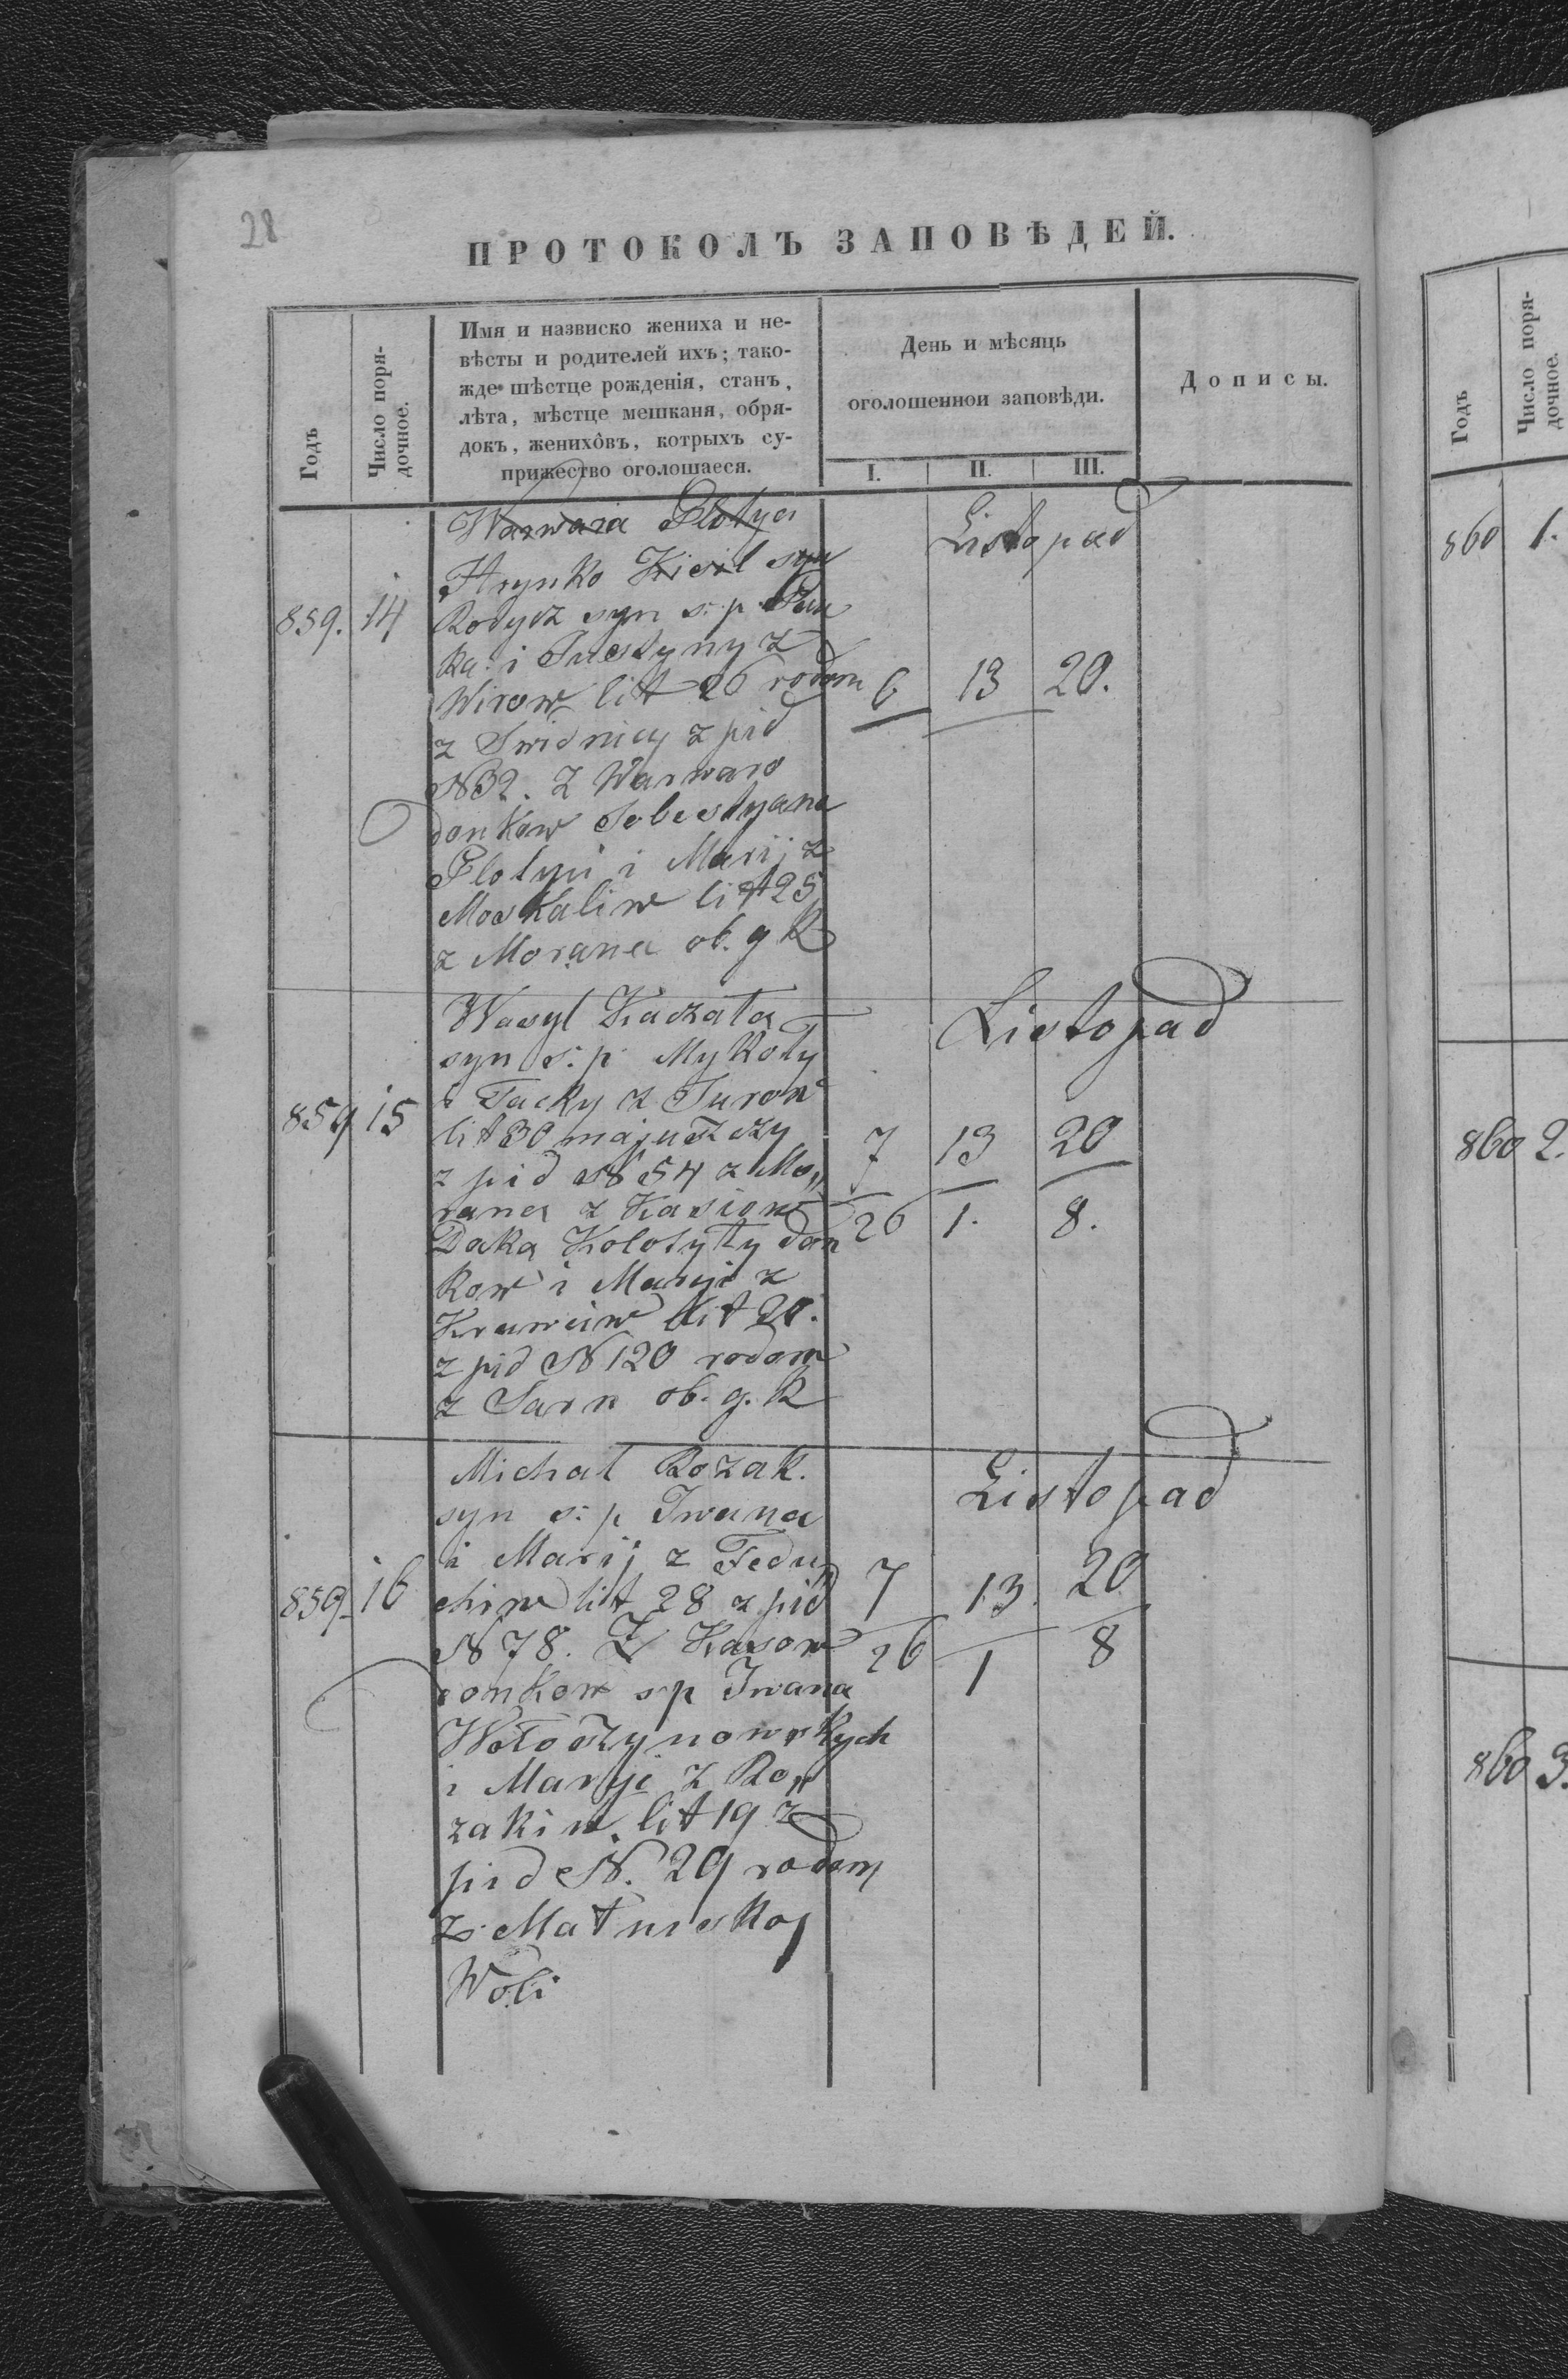 28
ПРОТОКОЛЪ ЗАПОВѢДЕЙ.
Годъ
Число поря-
дочное.
Имя и назвиско жениха и не-
вѣсты и родителей ихъ; тако-
жде шѣстце рожденія, станъ,
лѣта, мѣстце мешканя, обря-
докъ, женихôвъ, котрыхъ су-
прижество оголошаеся.
День и мѣсяць
оголошеннои заповѣди.
I. II. III.
Дописы.
859. 14
Warwara Plotyci
Hrynko Kicil syn
Kotycz syn s. p.
ka i Justyny z
Wirow lit 26 rodom
z Swidnicy z pid
N 32. Z Warwaro
donkow Sebestyana
Plotyci i Marij z
Moskaliw lit 25
z Moranec ob. g R
Listopad
6 13 20.
859 15
Wasyl Kaczała
syn s. p. Mykoły
i Jacky z Turoń
lit 30 majuszczy
z pid N 54 z Mo„
ranec z Kasiow
Daka Kolotyły don
kow i Maryi z
Krawciw lit 20.
z pid N 120 rodom
z Sarn ob. g. R
Listopad
7 13 20
26 1. 8.
859. 16
Michał Kozak.
syn s. p Iwana
i Marij z Fedu„
chiw lit 28 z pid
N 78. Z Kasow
donkow s p Iwana
Wołoszynowskych
i Maryi z Ko„
zakiw lit 19 z
pid N. 29 rodom
z Matnuskoj
Woli
Listopad
7 13. 20
26 1 8
Годъ
Число поря-
дочное.
860 1.
860 2.
860 3.